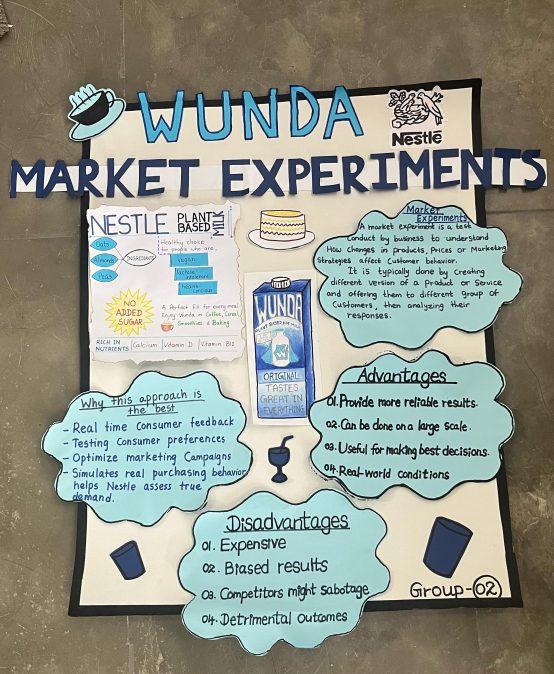 WUNDA
Nestlē
MARKET EXPERIMENTS
NESTLE PLANT BASED MILK
Oats
Almonds
Peas
INGREDIENTS
Healthy choice
for people who are..
vegan
lactose
intolerant
health
concious
NO
ADDED
SUGAR
A Perfect Fit for every meal
Enjoy Wunda in Coffee, Cereal,
Smoothies & Baking
RICH IN
NUTRIENTS
Calcium
Vitamin D
Vitamin B12
WUNDA
W
ORIGINAL
TASTES
GREAT IN
EVERYTHING
Market
Experiments
A market experiment is a test
conduct by business to understand
How Changes in products, Prices or Marketing
Strategies affect Customer behavior.
It is typically done by creating
different Version of a Product or Service
and offering them to different Group of
Customers, then analyzing their
responses.
Advantages
01. Provide more reliable results.
02. Can be done on a large scale.
03. Useful for making best decisions.
04. Real-world conditions
Why this approach is
the best
- Real time Consumer feedback
- Testing Consumer preferences
- Optimize marketing Campaigns
- Simulates real purchasing behavior
helps Nestle assess true
demand.
Disadvantages
01. Expensive
02. Biased results
03. Competitors might sabotage
04. Detrimental Outcomes
Group-02